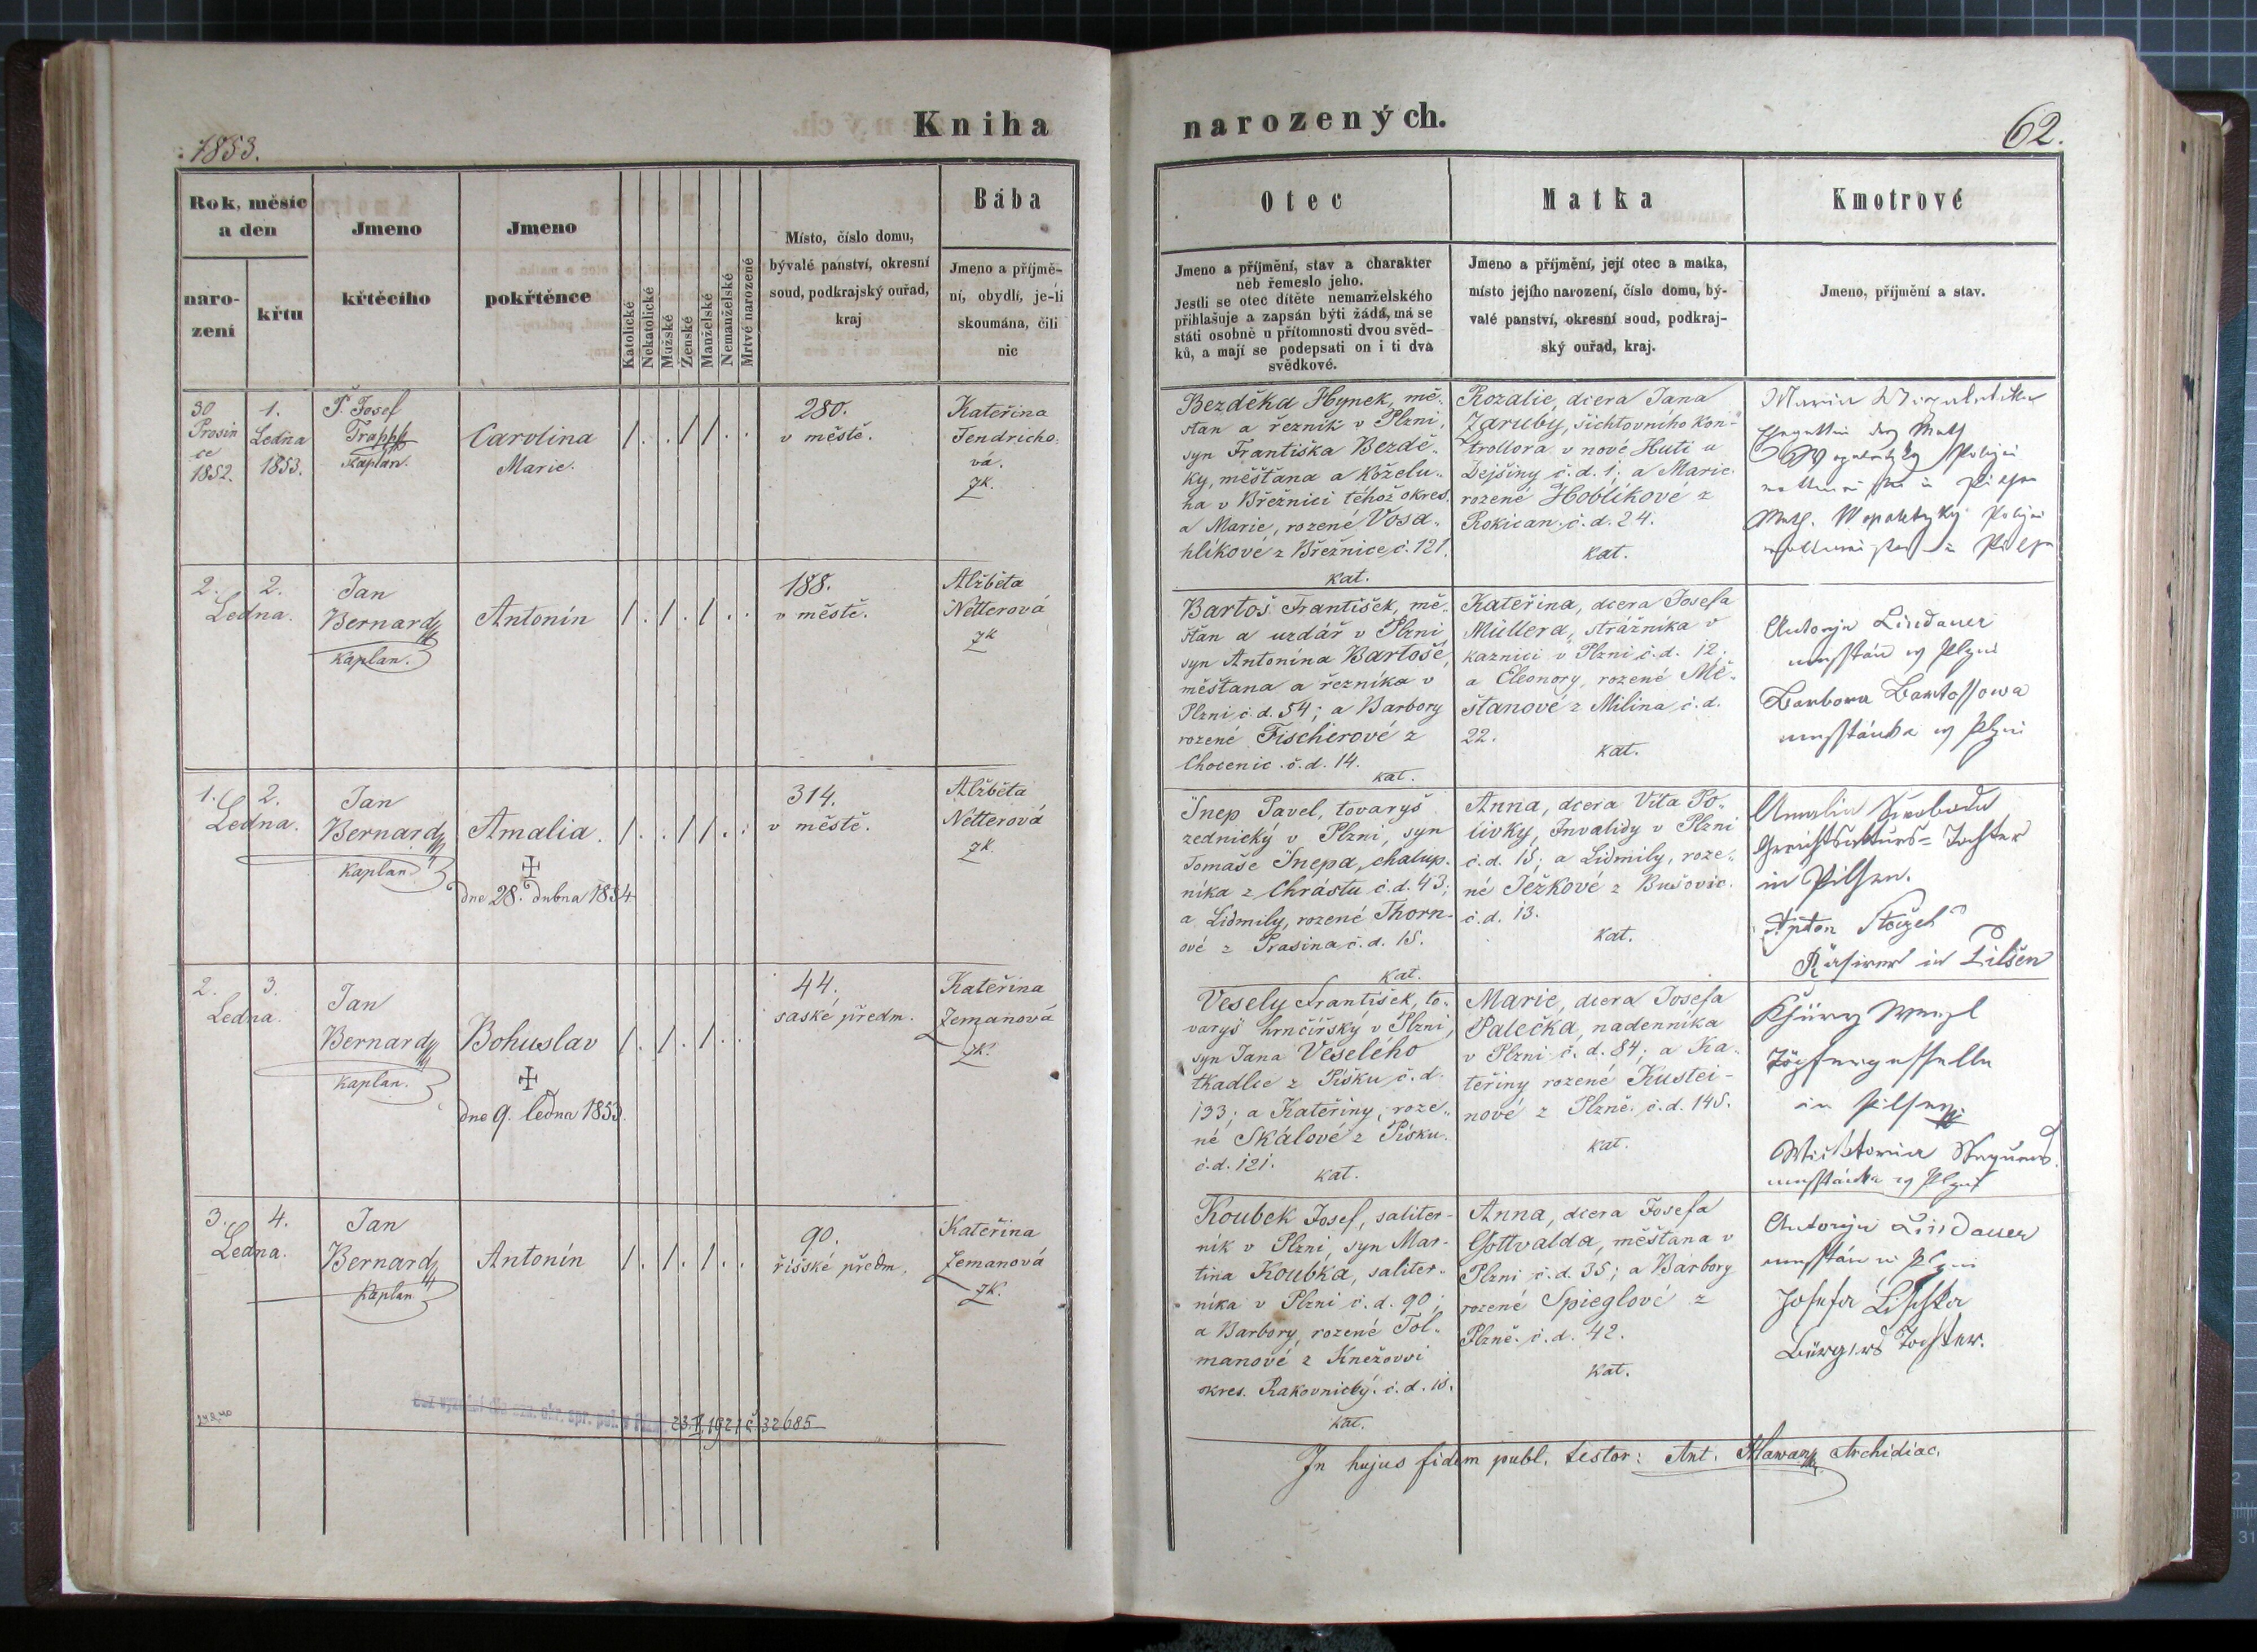 Kniha
1853.
Rok, měsíc
a den
naro-
zení
křtu
Jmeno
křtěcího
Jmeno
pokřtěnce
Katolické
Nekatolické
Mužské
Ženské
Manželské
Nemanželské
Mrtvé narozené
Místo, číslo domu,
bývalé panství, okresní
soud, podkrajský ouřad,
kraj
Bába
Jmeno a příjmě-
ní, obydlí, je-li
skoumána, čili
nic
30
Prosin
ce
1852.
1.
Ledna
1853.
P. Josef
Trappl
Kaplan.
Carolina
Marie.
1 . . 1 1 . .
280.
v městě.
Kateřina
Jendricho-
vá.
zk.
2. 2.
Ledna.
Jan
Bernard
Kaplan.
Antonín
1 . 1 . 1 . .
188.
v městě.
Alžběta
Netterová
zk
1. 2.
Ledna.
Jan
Bernard
Kaplan
Amalia.
dne 28. dubna 1854
1 . . 1 1 . .
314.
v městě.
Alžběta
Netterová
zk.
2. 3.
Ledna.
Jan
Bernard
Kaplan.
Bohuslav
dne 9. ledna 1853.
1 . 1 . 1 . .
44.
saské předm.
Kateřina
Zemanová
zk.
3. 4.
Ledna.
Jan
Bernard
Kaplan
Antonín
1 . 1 . 1 . .
90.
říšské předm.
Kateřina
Zemanová
zk.
23. 1921 č. 32685
narozených.
62.
Otec
Jmeno a příjmění, stav a charakter
neb řemeslo jeho.
Jestli se otec dítěte nemanželského
přihlašuje a zapsán býti žádá, má se
státi osobně u přítomnosti dvou svěd-
ků, a mají se podepsati on i ti dva
svědkové.
Matka
Jmeno a příjmění, její otec a matka,
místo jejího narození, číslo domu, bý-
valé panství, okresní soud, podkraj-
ský ouřad, kraj.
Kmotrové
Jmeno, příjmění a stav.
Bezděka Hynek, mě-
štan a řezník v Plzni,
syn Františka Bezdě-
ky, měšťana a koželu-
ha v Březnici téhož okres.
a Marie, rozené Vosa-
hlíkové z Březnice č. 121.
kat.
Rozalie, dcera Jana
Zaruby, šichtovního kon-
trollora v nové Huti u
Dejšiny č. d. 1; a Marie
rozené Hoblíkové z
Rokican. č. d. 24.
kat.
Maria
Bartoš František, mě-
štan a uzdář v Plzni
syn Antonína Bartoše,
měšťana a řezníka v
Plzni č. d. 54; a Barbory
rozené Fischerové z
Chocenic. č. d. 14.
kat.
Kateřina, dcera Josefa
Müllera, strážníka v
kaznici v Plzni č. d. 12.
a Eleonory, rozené Mě-
štanové z Milina č. d.
22.
kat.
Antonjn Lindauer
messtán w Plzni
Barbora Bartossowa
messtánka w Plzni
Šnep Pavel, tovaryš
zednický v Plzni, syn
Tomaše Šnepa, chalup-
níka z Chrástu č. d. 43;
a Lidmily, rozené Thorn-
ové z Prasina č. d. 15.
kat.
Anna, dcera Víta Po-
livky, Invalidy v Plzni
č. d. 15; a Lidmily, roze-
né Ježkové z Bušovic.
č. d. 13.
kat.
Amalia Swoboda
Tochter
in Pilsen.
Anton
in Pilsen
Vesely František, to-
varyš hrnčířský v Plzni,
syn Jana Veselého
tkadlce z Písku č. d.
133; a Kateřiny, roze-
né Skálové z Písku.
č. d. 121.
kat.
Marie, dcera Josefa
Palečka, nadenníka
v Plzni č. d. 84; a Ka-
teřiny rozené Kustei-
nové z Plzně. č. d. 145.
kat.
Töpfergeselle
in Pilsen
messtánka w Plzni
Koubek Josef, saliter-
ník v Plzni, syn Mar-
tina Koubka, saliter-
níka v Plzni č. d. 90;
a Barbory, rozené Tol-
manové z Kněžovsi
okres. Rakovnický. č. d. 18.
kat.
Anna, dcera Josefa
Gottvalda, měšťana v
Plzni č. d. 35; a Barbory
rozené Spieglové z
Plzně. č. d. 42.
kat.
Antonjn Lindauer
messtán w Plzni
Josefa Lischka
Bürgers Tochter.
In hujus fidem publ. testor: Ant. Hlawan Archidiac.